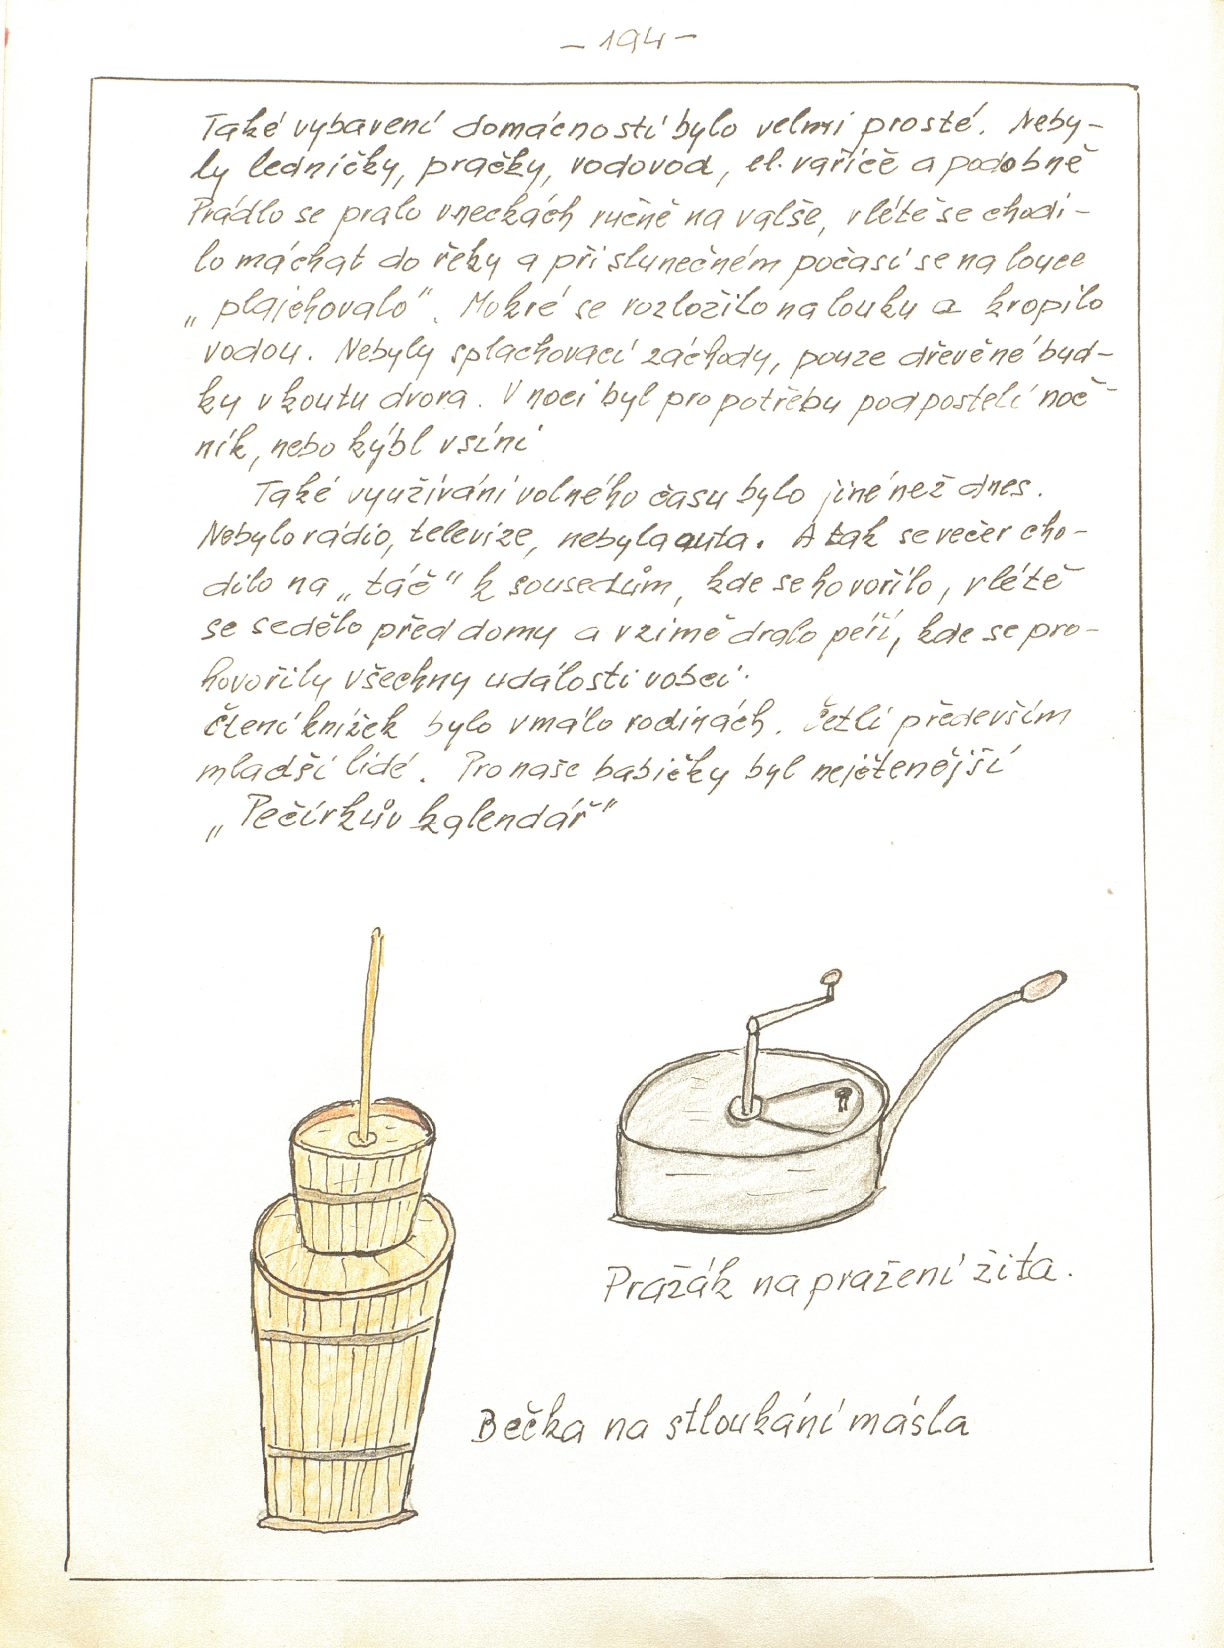 - 194 -
Také vybavení domácností bylo velmi prosté. Neby-
ly ledničky, pračky, vodovod, el. vařiče a podobně
Prádlo se pralo v neckách ručně na valše, v létě se chodi-
lo máchat do řeky a při slunečném počasí se na louce
„plajchovalo". Mokré se rozložilo na louku a kropilo
vodou. Nebyly splachovací záchody, pouze dřevěné bud-
ky v koutu dvora. V noci byl pro potřebu pod postelí noč-
ník, nebo kýbl v síni
Také využívání volného času bylo jiné než dnes.
Nebylo rádio, televize, nebyla auta. A tak se večer cho-
dilo na „táč" k sousedům, kde se hovořilo, v létě
se sedělo před domy a v zimě dralo peří, kde se pro-
hovořily všechny události v obci.
Čtení knížek bylo v málo rodinách. Četli především
mladší lidé. Pro naše babičky byl nejčtenější
„Pečírkův kalendář"
Pražák na pražení žita.
Bečka na stloukání másla